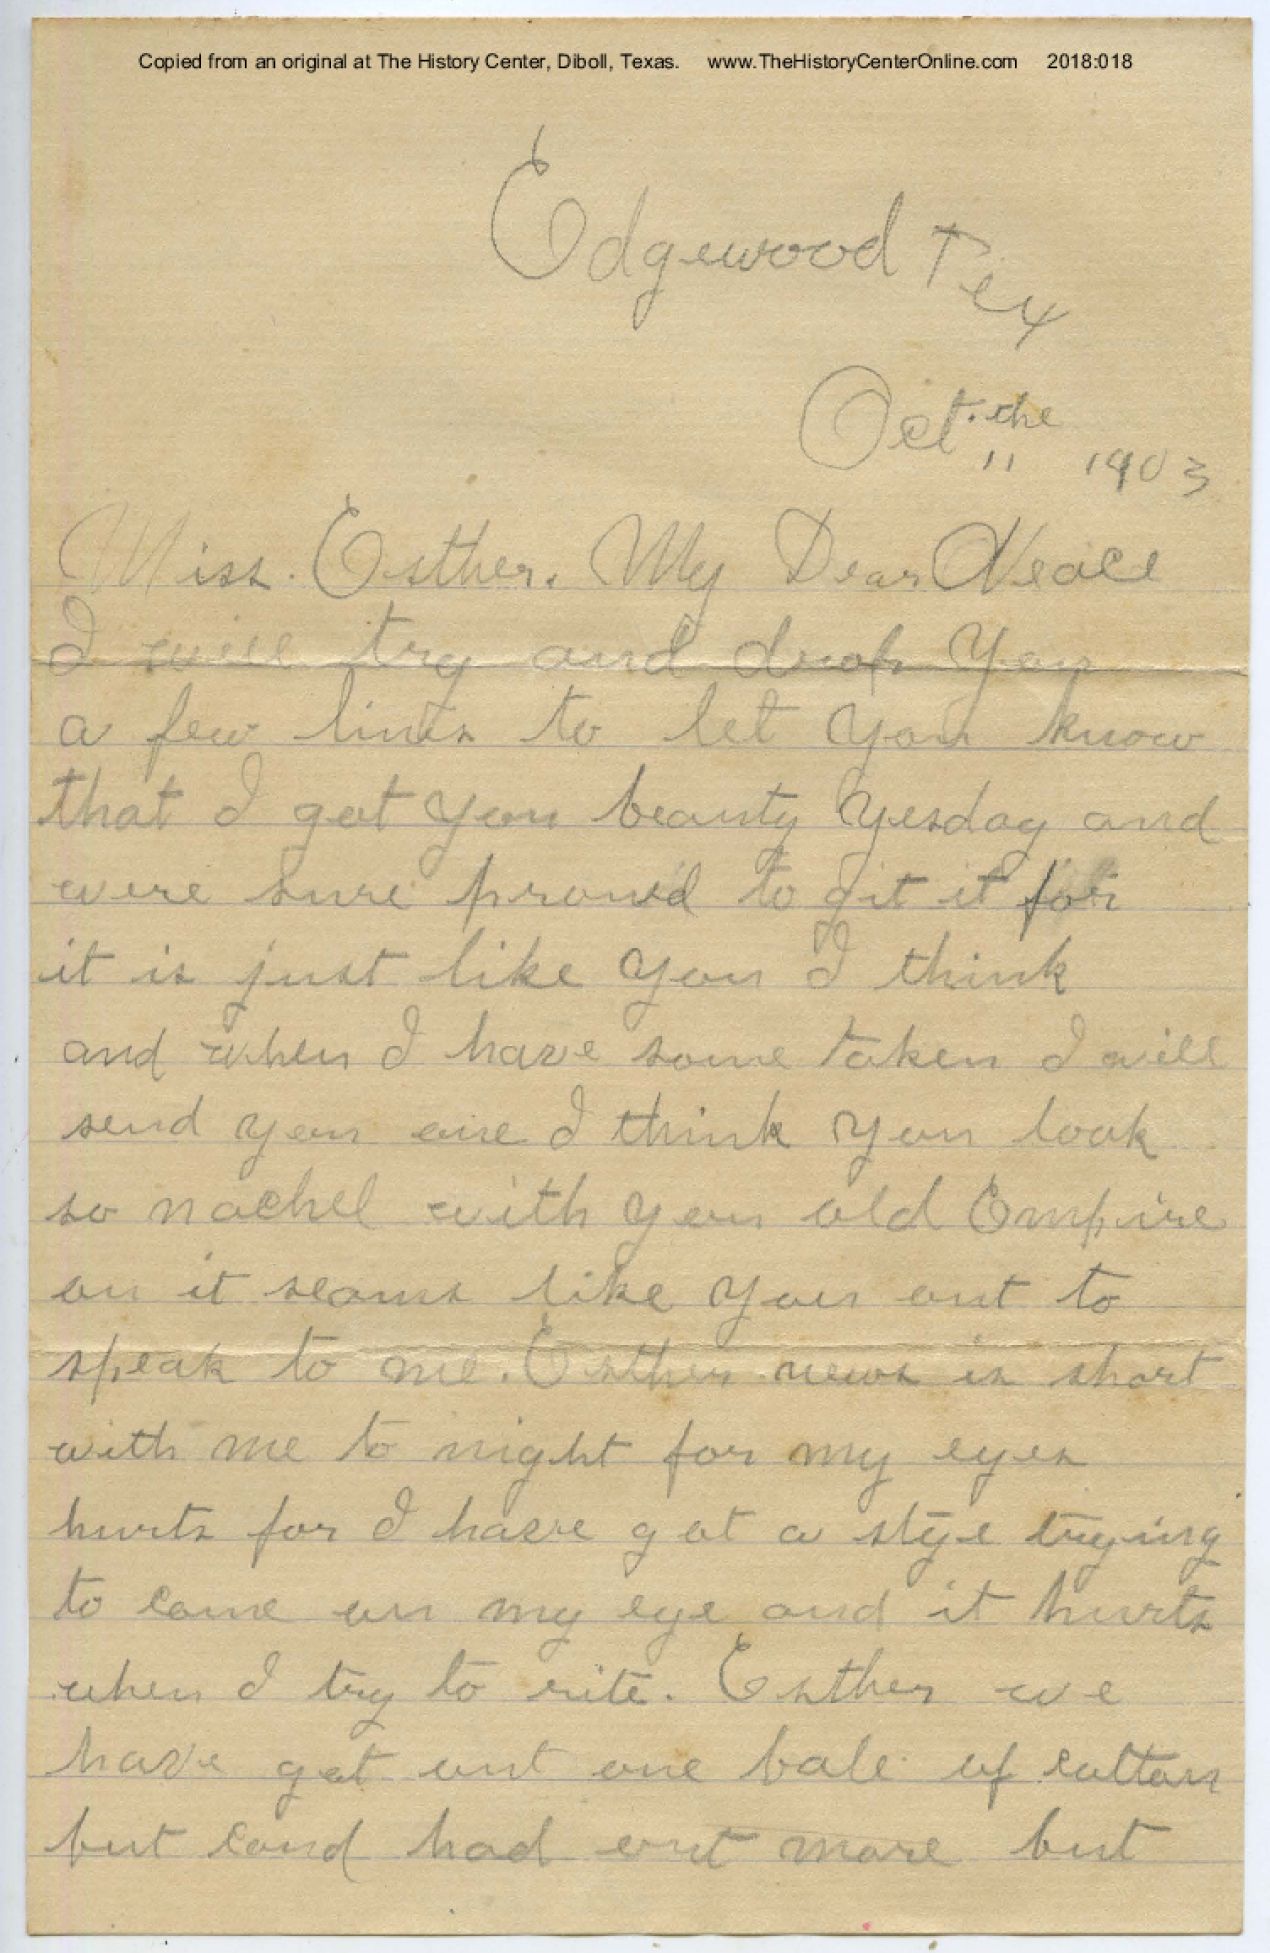 Copied from an original at The History Center, Diboll, Texas. www.TheHistoryCenterOnline.com 2018:018
Edgewood Tex
Oct. the 11 1903
Miss. Esther. My Dear Neace
I will try and drop you
a few lines to let you know
that I got you beauty yesday and
were sure proud to git it for
it is just like you I think
and when I have some taken I will
send you one I think you look
so nachel with you old Empire
on it seams like you out to
speak to me. Esther news is short
with me to night for my eyes
hurts for I have got a stye trying
to come on my eye and it hurts
when I try to rite. Esther we
have got out one bale of cotton
but coud had out more but